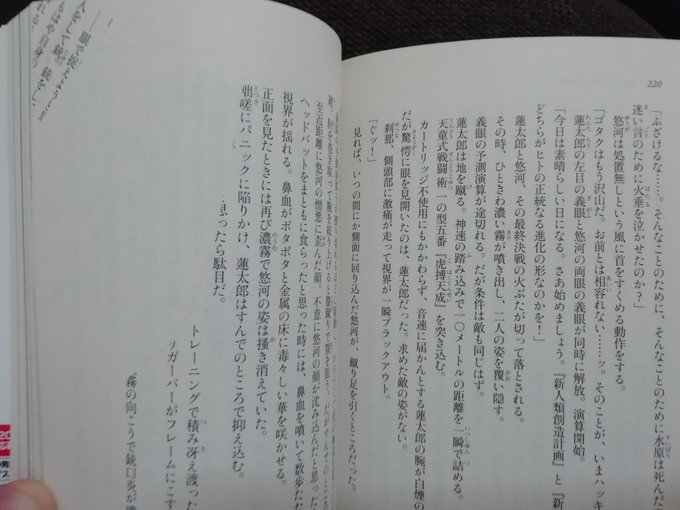 220
「ふざけるな……。そんなことのために、そんなことのために水原は死んだ
迷い言のために火垂を泣かせたのか？」
悠河は処置無しという風に首をすくめる動作をする。
「ゴタクはもう沢山だ。お前とは相容れない……ッ。そのことが、いまハッキ
蓮太郎の左目の義眼と悠河の両眼の義眼が同時に解放。演算開始。
「今日は素晴らしい日になる。さあ始めましょう。『新人類創造計画』と『新
どちらがヒトの正統なる進化の形なのかを！」
蓮太郎と悠河、その最終決戦の火ぶたが切って落とされる。
その時、ひときわ濃い霧が噴き出し、二人の姿を覆い隠す。
義眼の予測演算が途切れる。だが条件は敵も同じはず。
蓮太郎は地を蹴る。神速の踏み込みで一〇メートルの距離を一瞬で詰める。
天童式戦闘術一の型五番『虎搏天成』を突き込む。
カートリッジ不使用にもかかわらず、音速に届かんとする蓮太郎の腕が白煙の
だが驚愕に眼を見開いたのは、蓮太郎だった。求めた敵の姿がない。
刹那、側頭部に激痛が走って視界が一瞬ブラックアウト。
「ぐッ！」
見れば、いつの間にか側面に回り込んだ悠河が、蹴り足を引くところだった。
至近距離に悠河の憎悪に歪んだ顔、不意に悠河の顔が沈み込んだと思った
ヘッドバットをまともに食らったと思った時には、鼻血を噴いて数歩たた
視界が揺れる。鼻血がボタボタと金属の床に毒々しい華を咲かせる。
正面を見たときには再び濃霧で悠河の姿は掻き消えていた。
咄嗟にパニックに陥りかけ、蓮太郎はすんでのところで抑え込む。
思ったら駄目だ。
トレーニングで積み冴え渡った
ガーバーがフレームにこす
霧の向こうで銃口炎が